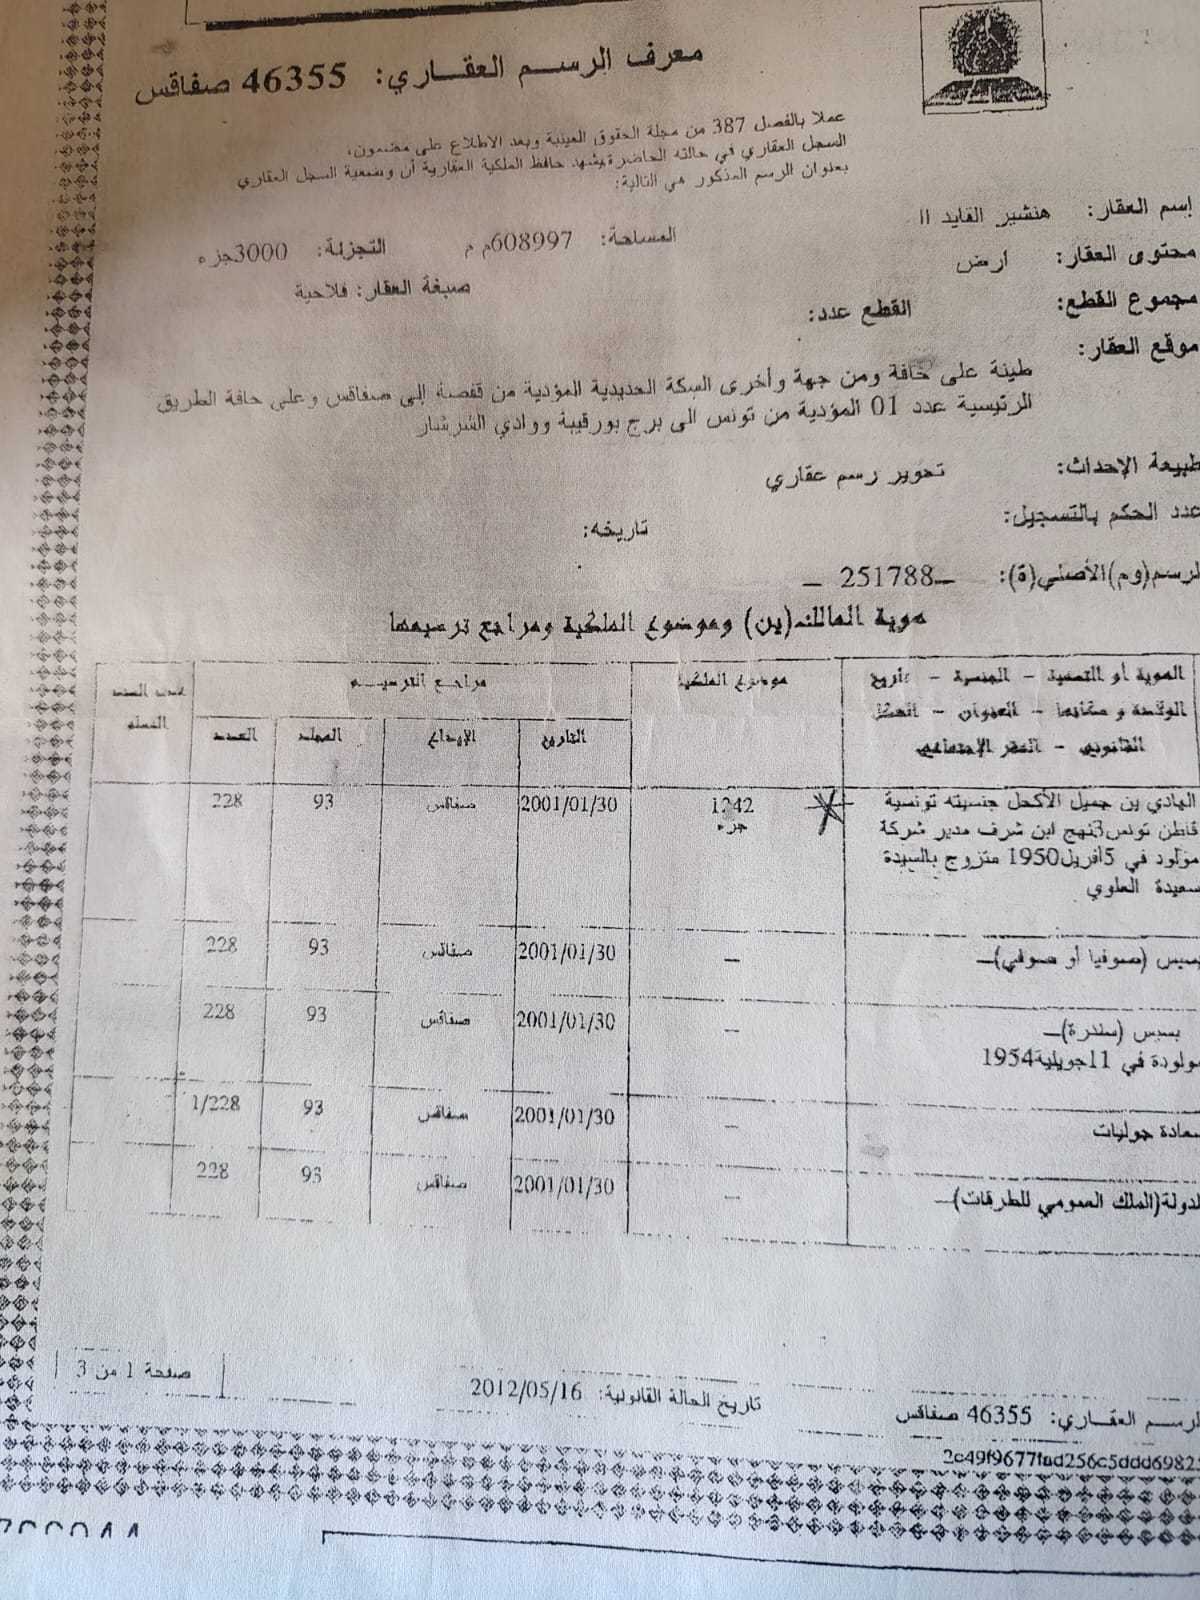 معرف الرسم العقاري: 46355 صفاقس
عملا بالفصل 387 من مجلة الحقوق العينية وبعد الاطلاع على مضمون،
السجل العقاري في حالته الحاضرة يشهد حافظ الملكية العقارية أن وضعية السجل العقاري
بعنوان الرسم المذكور هي التالية:
إسم العقار: هنشير القايد II
محتوى العقار: ارض المساحة: 608997م م التجزئة: 3000جزء
مجموع القطع: القطع عدد: صبغة العقار: فلاحية
موقع العقار:
طينة على حافة ومن جهة وأخرى السكة الحديدية المؤدية من قفصة إلى صفاقس وعلى حافة الطريق
الرئيسية عدد 01 المؤدية من تونس الى برج بورقيبة ووادي الشرشار
طبيعة الإحداث: تحوير رسم عقاري
عدد الحكم بالتسجيل: تاريخه:
لرسم(وم)الأصلي(ة): _251788 _
هوية المالك(ين) وموضوع الملكية ومراجع ترسيمها
الهوية أو التسمية - الجنسية - تاريخ موضوع الملكية مراجع الترسيم عدد السند
الولادة و مكانها - العنوان -
القانوني - المقر الإجتماعي التاريخ الإيداع المجلد العدد
الهادي بن جميل الأكحل جنسيته تونسية 1242 2001/01/30 صفاقس 93 228
قاطن تونس3نهج ابن شرف مدير شركة جزء
مولود في 5أفريل1950 متزوج بالسيدة
سعيدة العلوي
بسيس (صوفيا أو صوفي)_ _ 2001/01/30 صفاقس 93 228
بسيس (سندرة)_ _ 2001/01/30 صفاقس 93 228
مولودة في 11جويلية1954
سعادة جوليات _ 2001/01/30 صفاقس 93 1/228
لدولة(الملك العمومي للطرقات)_ _ 2001/01/30 صفاقس 93 228
صفحة 1 من 3
تاريخ الحالة القانونية: 2012/05/16
لرسم العقاري: 46355 صفاقس
2c49f9677fad256c5ddd69825